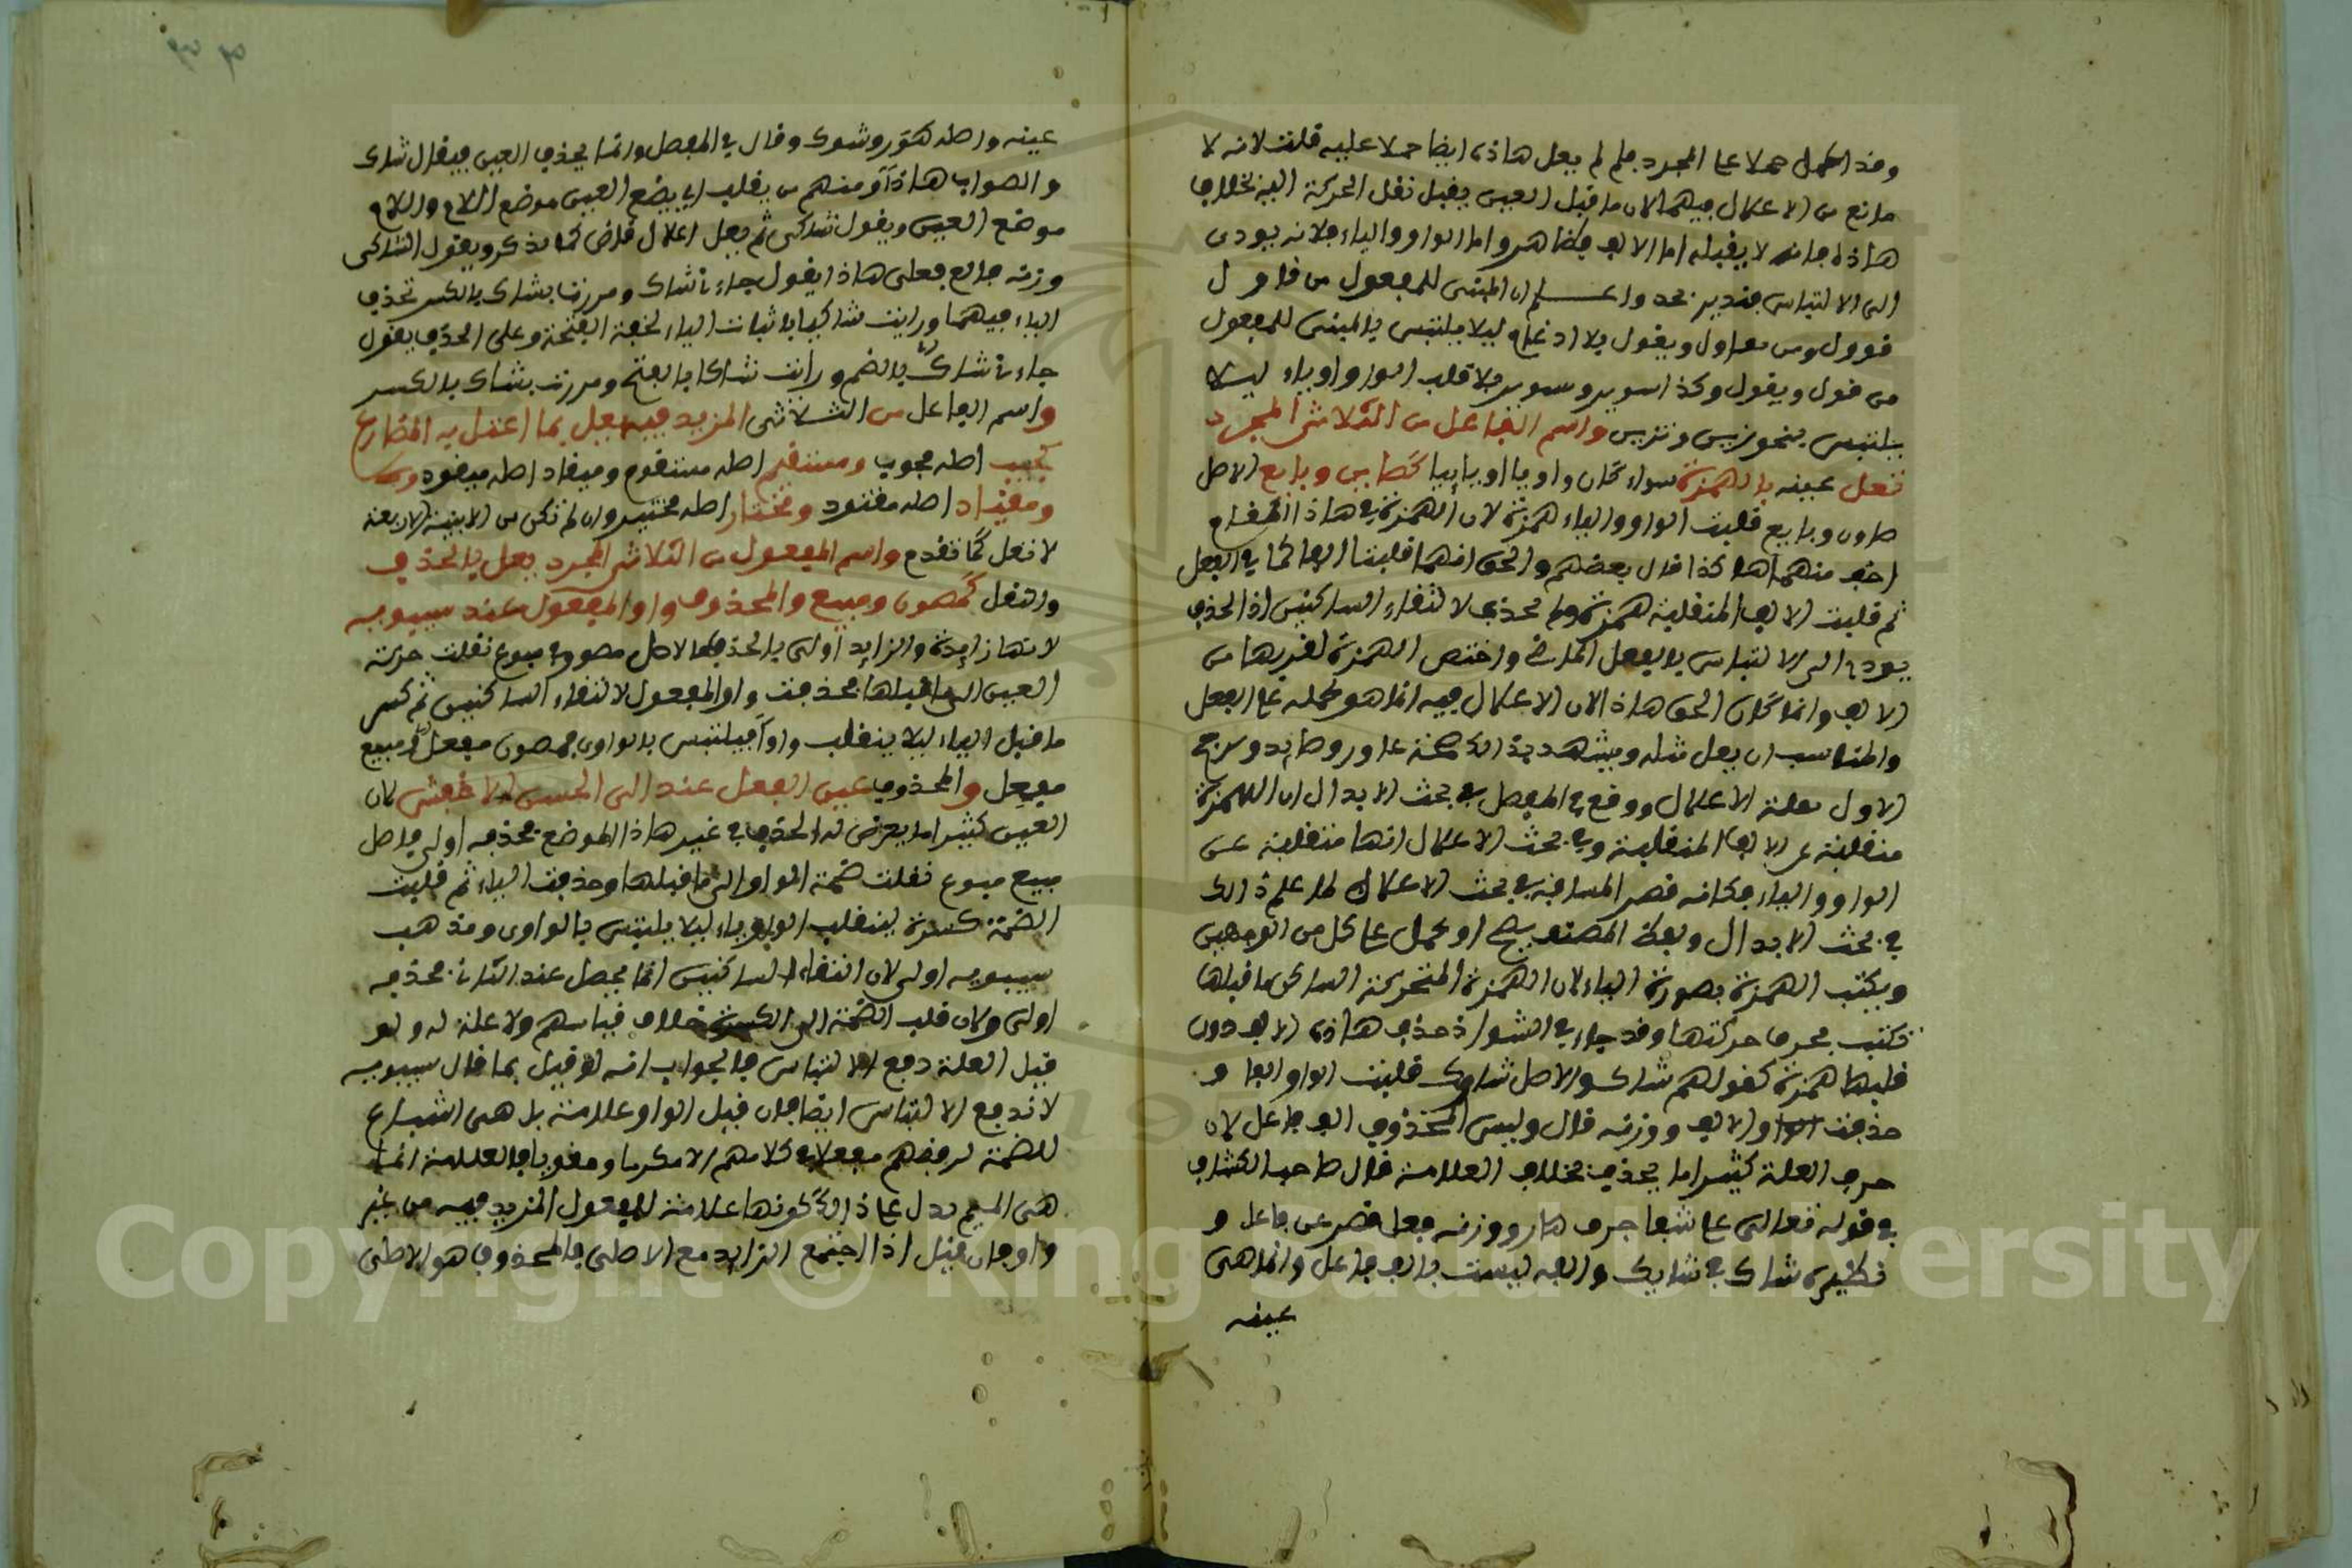 وقد اعمل حملا على المجرد فلم لم يعل هاذه ايضا حملا عليه قلت لانه لا
مانع من الاعلال فيهما لان ما قبل العين يقبل نقل الحركة اليه بخلاف
هاذه فانه لا يقبله اما الالف فظاهر واما الواو والياء فلانه يودي
الى الالتباس فتدبر واعلم ان المبني للمفعول من قاول
قوول ومن تقاول ويقول بلا ادغام ليلا يلتبس بالمبني للمفعول
من قول ويقول وكذا سوير وسوير بلا قلب الواو ياء ليلا
يلتبس بنحو زين وتزين واسم الفاعل من الثلاثي المجرد
تعل عينه بالهمزة سواء كان واويا او يايا كصاين وبايع الاصل
صاون وبايع قلبت الواو والياء همزة لان الهمزة في هاذا المقام
اخف منهما هاكذا قال بعضهم والحق انهما قلبتا الفا كما في الفعل
ثم قلبت الالف المنقلبة همزة ولم تحذف لالتقاء الساكنين اذ الحذف
يودي الى الالتباس بالفعل الماضي واختص الهمزة لقربها من
الالف وانما كان الحق هاذا لان الاعلال فيه انما هو لحمله على الفعل
والمناسب ان يعل مثله ويشهد بذالك صحة عاور وصايد ويرجح
الاول بعلة الاعلال ووقع في المفصل في بحث الابدال ان الهمزة
منقلبة عن الالف المنقلبة وفي بحث الاعلال انها منقلبة عن
الواو والياء فكانه قصر المسافة في بحث الاعلال لما علم ذالك
في بحث الابدال ولفظ المصنف يصح ان يحمل على كل من الوجهين
ويكتب الهمزة بصورة الياء لان الهمزة المتحركة الساكن ما قبلها
تكتب بحرف حركتها وقد جاء في الشواذ حذف هاذه الالف دون
قلبها همزة كقولهم شاك والاصل شاوك قلبت الواو الفا و
حذفت الالف ووزنه فال وليس المحذوف الف فاعل لان
حرف العلة كثيرا ما يحذف بخلاف العلامة قال صاحب الكشاف
في قوله تعالى على شفا جرف هار ووزنه فعل قصر عن فاعل و
نظيره شاك في شايك والفه ليست بالف فاعل وانما هى
عينه
عينه واصله هور وشوك وقال في المفصل وانما يحذف العين فيقال شاك
والصواب هاذا ومنهم من يقلب اي يضع العين موضع اللام واللام
موضع العين ويقول شاكي ثم يعل اعلال قاض كما يذكر ويقول الشاكى
وزنه فالع فعلى هاذا يقول جاءني شاك ومررت بشاك بالكسر تحذف
الياء فيهما ورايت شاكيا باثبات الياء لخفة الفتحة وعلى الحذف يقول
جاءني شاك بالضم ورايت شاكا بالفتح ومررت بشاك بالكسر
واسم الفاعل من الثلاثى المزيد فيه يعل بما اعتل به المضارع
كمجيب اصله مجوب ومستقيم اصله مستقوم ومنقاد اصله منقود
ومقتاد اصله مقتود ومختار اصله مختير وان لم تكن من الابنية الاربعة
لا تعل كما تقدم واسم المفعول من الثلاثي المجرد يعل بالحذف
والنقل كمصون ومبيع والمحذوف واو المفعول عند سيبويه
لانها زايدة والزايد اولى بالحذف فالاصل مصوون ومبيوع نقلت حركة
العين الى ما قبلها فحذفت واو المفعول لالتقاء الساكنين ثم كسر
ما قبل الياء ليلا ينقلب واوا فيلتبس بالواوي فمصون مفعل ومبيع
مفعل والمحذوف عين الفعل عند ابى الحسن الاخفش لان
العين كثيرا ما يعرض له الحذف في غير هاذا الموضع فحذفه اولى فاصل
مبيع مبيوع نقلت ضمة الواو الى ما قبلها وحذفت الياء ثم قلبت
الضمة كسرة لينقلب الواو ياء ليلا يلتبس بالواوى ومذهب
سيبويه اولى لان التقاء الساكنين انما يحصل عند الثاني فحذفه
اولى ولان قلب الضمة الى الكسرة خلاف قياسهم ولا علة له ولو
قيل العلة دفع الالتباس فالجواب انه لو قيل بما قال سيبويه
لاندفع الالتباس ايضا فان قيل الواو علامة بل هي اشباع
للضمة لرفضهم مفعلا في كلامهم الا مكرما ومعونا والعلامة انما
هى الميم يدل على ذالك كونها علامة للمفعول المزيد فيه من غير
واو فان قيل اذا اجتمع الزايد مع الاصلى فالمحذوف هو الاصلى
Copyright © King Saud University